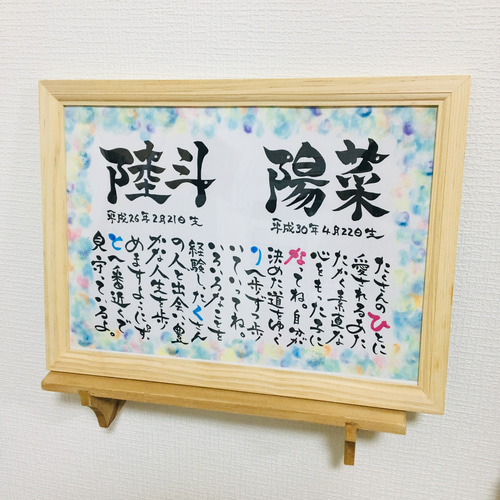 陸斗
平成26年2月21日生
陽菜
平成30年4月22日生
たくさんのひとに
愛されるあた
たかく素直な
心をもった子に
なってね。自分が
決めた道をゆっく
り一歩ずつ歩
いていってね。
いろいろなことを
経験したくさん
の人と出会い豊
かな人生を歩
めますように。ずっ
と一番近くで
見守っているよ。